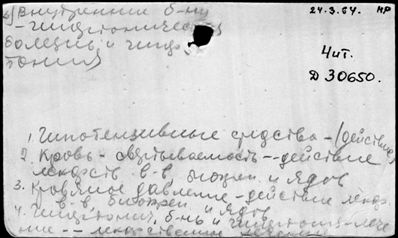 в) внутренние б-ни
24.3.64. НР
- гипертоническая
болезнь и гипер-
тония
Чит.
Д 30650.
1. Гипотензивные средства - (действие)
2. Кровь - свертываемость -- действие
лекарств. в-в, биопреп. и ядов
3. Кровяное давление - действие лекар.
в-в, биопреп. и ядов
4. Гипертонич. б-нь и гипертония - лече-
ние -- лекарственное